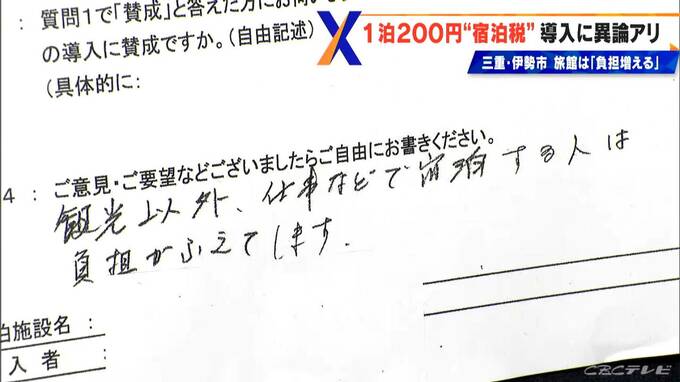 : 質問1で「賛成」と答えた方にお
の導入に賛成ですか。(自由記述)
(具体的に:
1泊200円"宿泊税" 導入に異論アリ
三重・伊勢市 旅館は「負担増える」
4 : ご意見・ご要望などございましたらご自由にお書きください。
観光以外、仕事などで宿泊する人は
負担がふえてします.
泊施設名 :
入者 :
CBCテレビ